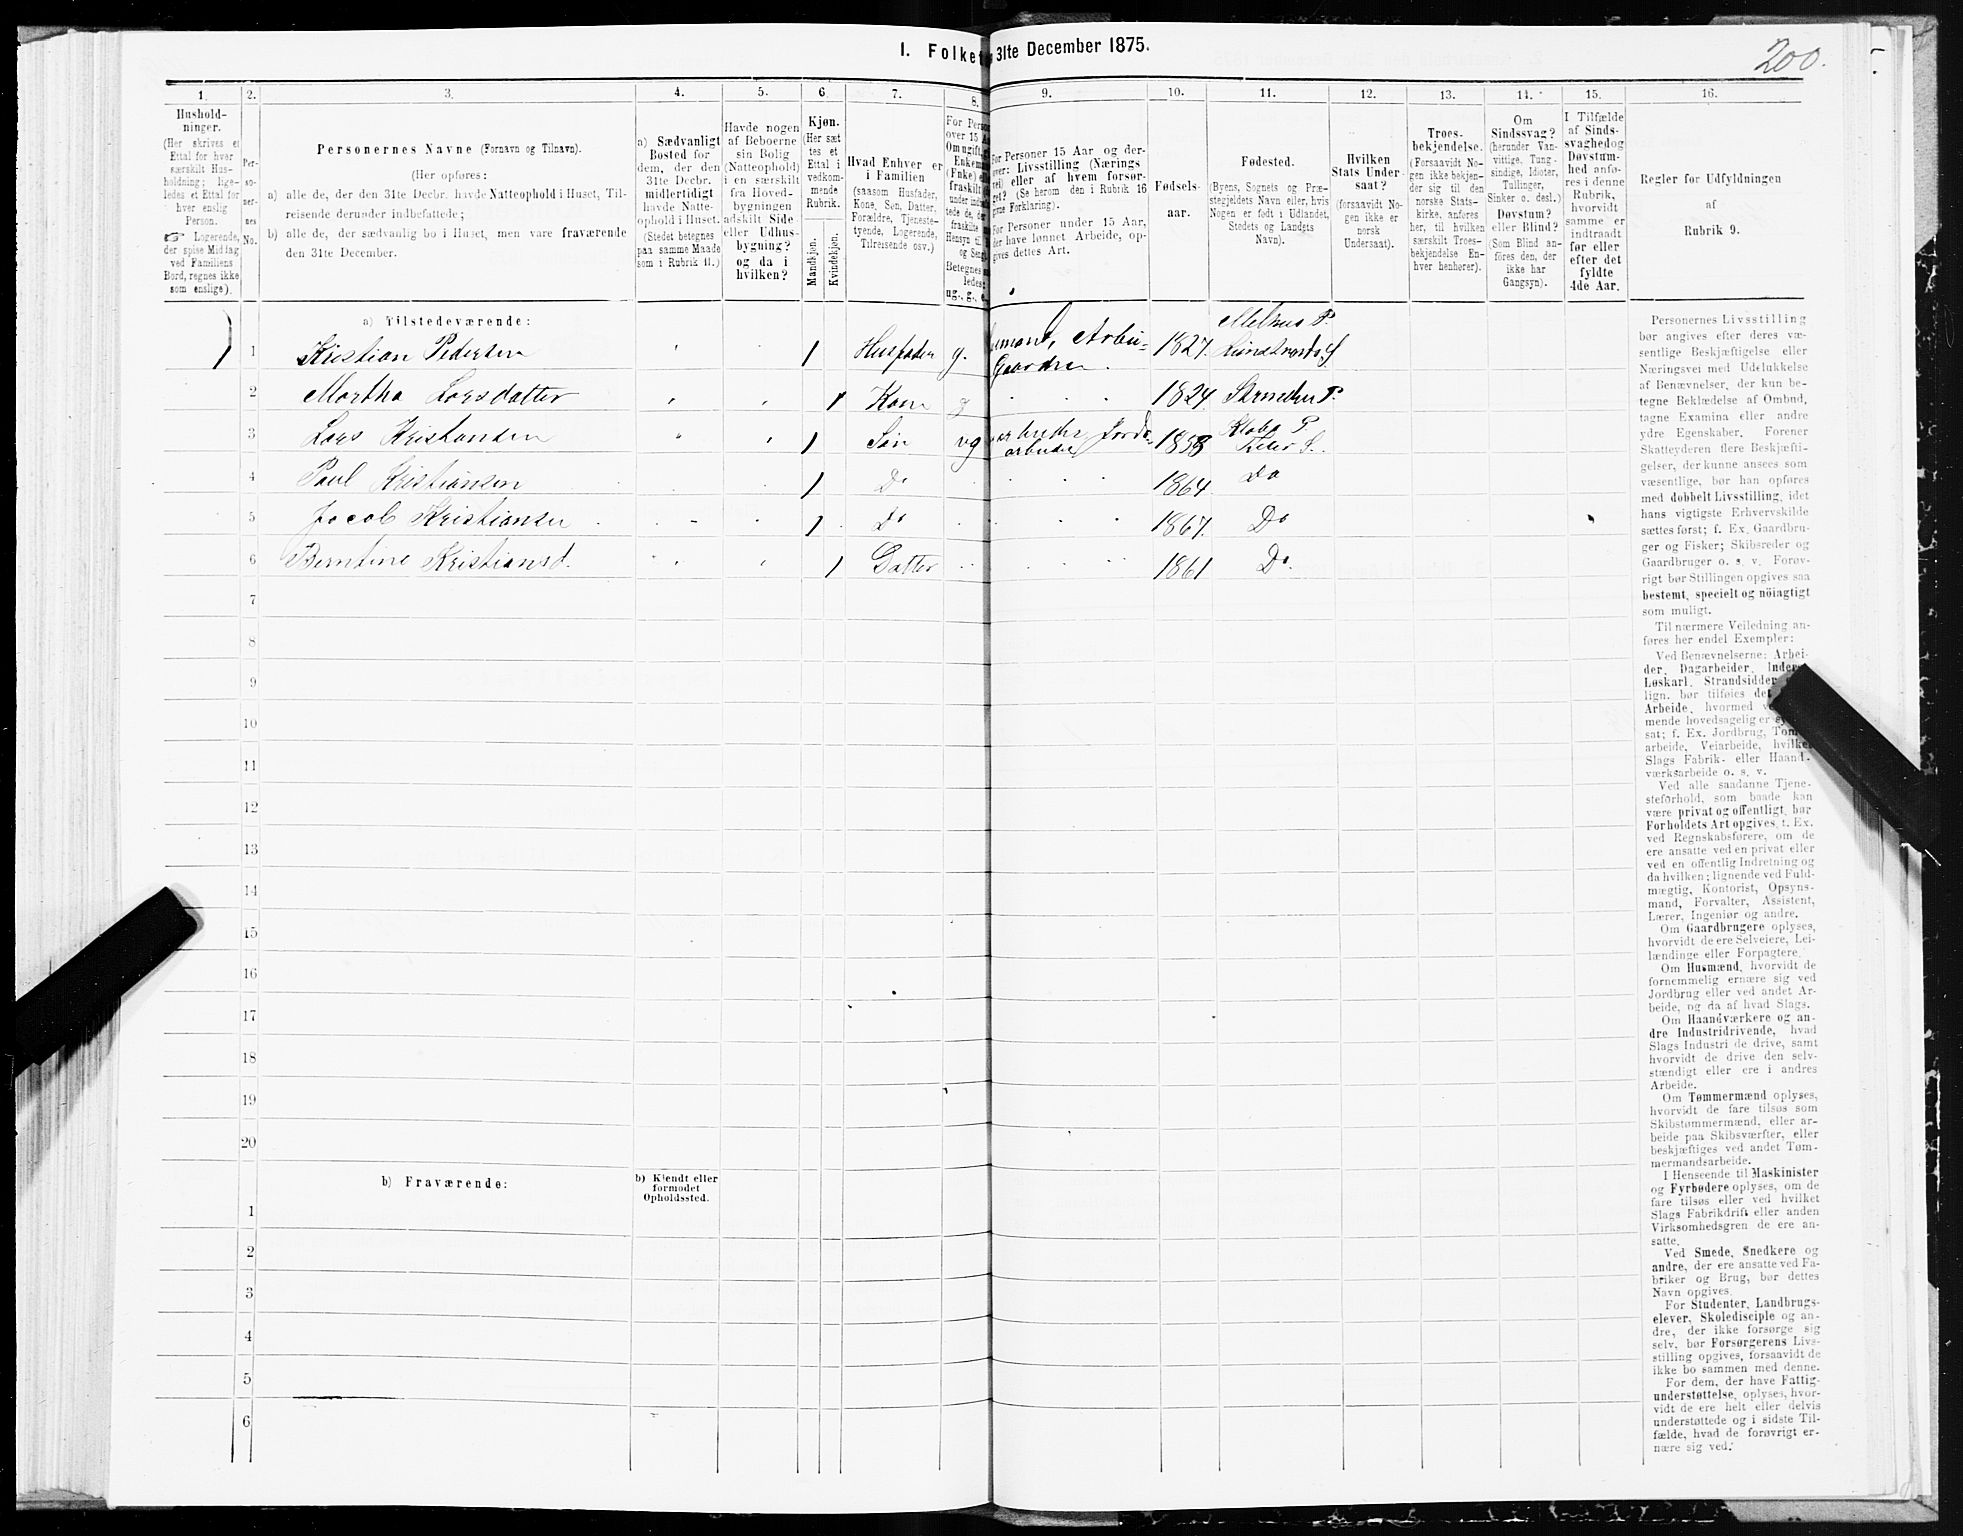 I. Folket 31te December 1875.
200.
1. 2. 3. 4. 5. 6. 7. 8. 9. 10. 11. 12. 13. 14. 15. 16.
Hushold-
ninger.
(Her skrives et
Ettal for hver
særskilt Hus-
holdning; lige-
ledes et Ettal for
hver enslig
Person.
☞ Logerende,
der spise Middag
ved Familiens
Bord, regnes ikke
som enslige).
Per-
so-
ner-
nes
No.
Personernes Navne (Fornavn og Tilnavn).
(Her opføres:
a) alle de, der den 31te Decbr. havde Natteophold i Huset, Til-
reisende derunder indbefattede;
b) alle de, der sædvanlig bo i Huset, men vare fraværende
den 31te December.
a) Sædvanligt
Bosted for
dem, der den
31te Decbr.
midlertidigt
havde Natte-
ophold i Huset.
(Stedet betegnes
paa samme Maade
som i Rubrik 11.)
Havde nogen
af Beboerne
sin Bolig
(Natteophold)
i en særskilt
fra Hoved-
bygningen
adskilt Side
eller Udhus-
bygning?
og da i
hvilken?
Kjøn.
(Her sæt
tes et
Ettal i
vedkom-
mende
Rubrik.
Mandkjøn.
Kvindekjøn.
Hvad Enhver er
i Familien
(saasom Husfader,
Kone, Søn, Datter,
Forældre, Tjeneste-
tyende, Logerende,
Tilreisende osv.)
For Pers
over 15 A
Om ugift,
Enkem
(Enke)
fraskilt
under indbe
tede de, d
fraskilte
Hensyn til
og Seng
Betegnes
ledes:
ug., g., e
For Personer 15 Aar og der-
over: Livsstilling (Nærings
vei) eller af hvem forsør-
get? (Se herom den i Rubrik 16
givne Forklaring).
For Personer under 15 Aar,
der have lønnet Arbeide, op-
gives dettes Art.
Fødsels-
aar.
Fødested.
(Byens, Sognets og Præ-
stegjeldets Navn eller, hvis
Nogen er født i Udlandet,
Stedets og Landets
Navn).
Hvilken
Stats Under-
saat?
(forsaavidt No-
gen ikke er
norsk
Undersaat).
Troes-
bekjendelse.
(Forsaavidt No-
gen ikke bekjen-
der sig til den
norske Stats-
kirke, anføres
her, til hvilken
særskilt Troes-
bekjendelse En-
hver henhører).
Om
Sindssvag?
(herunder Van-
vittige, Tung-
sindige, Idioter,
Tullinger,
Sinker o. desl.)
Døvstum?
eller Blind?
(Som Blind an-
føres den, der
ikke har
Gangsyn).
I Tilfælde
af Sinds-
svaghed og
Døvstum-
hed anfø-
res i denne
Rubrik,
hvorvidt
samme er
indtraadt
før eller
efter det
fyldte
4de Aar.
Regler for Udfyldningen
af
Rubrik 9.
a) Tilstedeværende:
1 1 Kristian Pedersen 1 Husfader g. 1827. Melhus P.
Gaarden.
2 Martha Larsdatter 1 Kone g 1824
3 Lars Kristiansen 1 Søn ug 1858 Klæbo P.
4 Paul Kristiansen 1 Do 1864 Do
5 Jacob Kristiansen 1 Do 1867. Do
6 Berntine Kristiansd. 1 Datter 1861 Do.
7
8
9
10
11
12
13
14
15
16
17
18
19
20
b) Fraværende:
b) Kjendt eller
formodet
Opholdssted.
1
2
3
4
5
6
Personernes Livsstilling
bør angives efter deres væ-
sentlige Beskjæftigelse eller
Næringsvei med Udelukkelse
af Benævnelser, der kun be-
tegne Beklædelse af Ombud,
tagne Examina eller andre
ydre Egenskaber. Forener
Skatteyderen flere Beskjæfti-
gelser, der kunne ansees som
væsentlige, bør han opføres
med dobbelt Livsstilling, idet
hans vigtigste Erhvervskilde
sættes først; f. Ex. Gaardbru-
ger og Fisker; Skibsreder og
Gaardbruger o. s. v. Forøv-
rigt bør Stillingen opgives saa
bestemt, specielt og nøiagtigt
som muligt.
Til nærmere Veiledning an-
føres her endel Exempler:
Ved Benævnelserne: Arbei-
der, Dagarbeider, Inders
Løskarl, Strandsidder
lign. bør tilføies de
Arbeide, hvormed v
mende hovedsagelig er sy
sat; f. Ex. Jordbrug, Tøm
arbeide, Veiarbeide, hvilket
Slags Fabrik- eller Haand-
værksarbeide o. s. v.
Ved alle saadanne Tjene-
steforhold, som baade kan
være privat og offentligt, bør
Forholdets Art opgives, t. Ex.
ved Regnskabsførere, om de
ere ansatte ved en privat eller
ved en offentlig Indretning og
da hvilken; lignende ved Fuld-
mægtig, Kontorist, Opsyns-
mand, Forvalter, Assistent,
Lærer, Ingeniør og andre.
Om Gaardbrugere oplyses,
hvorvidt de ere Selveiere, Lei-
lændinge eller Forpagtere.
Om Husmænd, hvorvidt de
fornemmelig ernære sig ved
Jordbrug eller ved andet Ar-
beide, og da af hvad Slags.
Om Haandværkere og an-
dre Industridrivende, hvad
Slags Industri de drive, samt
hvorvidt de drive den selv-
stændigt eller ere i andres
Arbeide.
Om Tømmermænd oplyses,
hvorvidt de fare tilsøs som
Skibstømmermænd, eller ar-
beide paa Skibsværfter, eller
beskjæftiges ved andet Tøm-
mermandsarbeide.
I Henseende til Maskinister
og Fyrbødere oplyses, om de
fare tilsøs eller ved hvilket
Slags Fabrikdrift eller anden
Virksomhedsgren de ere an-
satte.
Ved Smede, Snedkere og
andre, der ere ansatte ved Fa-
briker og Brug, bør dettes
Navn opgives.
For Studenter, Landbrugs-
elever, Skoledisciple og an-
dre, der ikke forsørge sig
selv, bør Forsørgerens Livs-
stilling opgives, forsaavidt de
ikke bo sammen med denne.
For dem, der have Fattig-
understøttelse, oplyses, hvor-
vidt de ere helt eller delvis
understøttede og i sidste Til-
fælde, hvad de forøvrigt er-
nære sig ved.